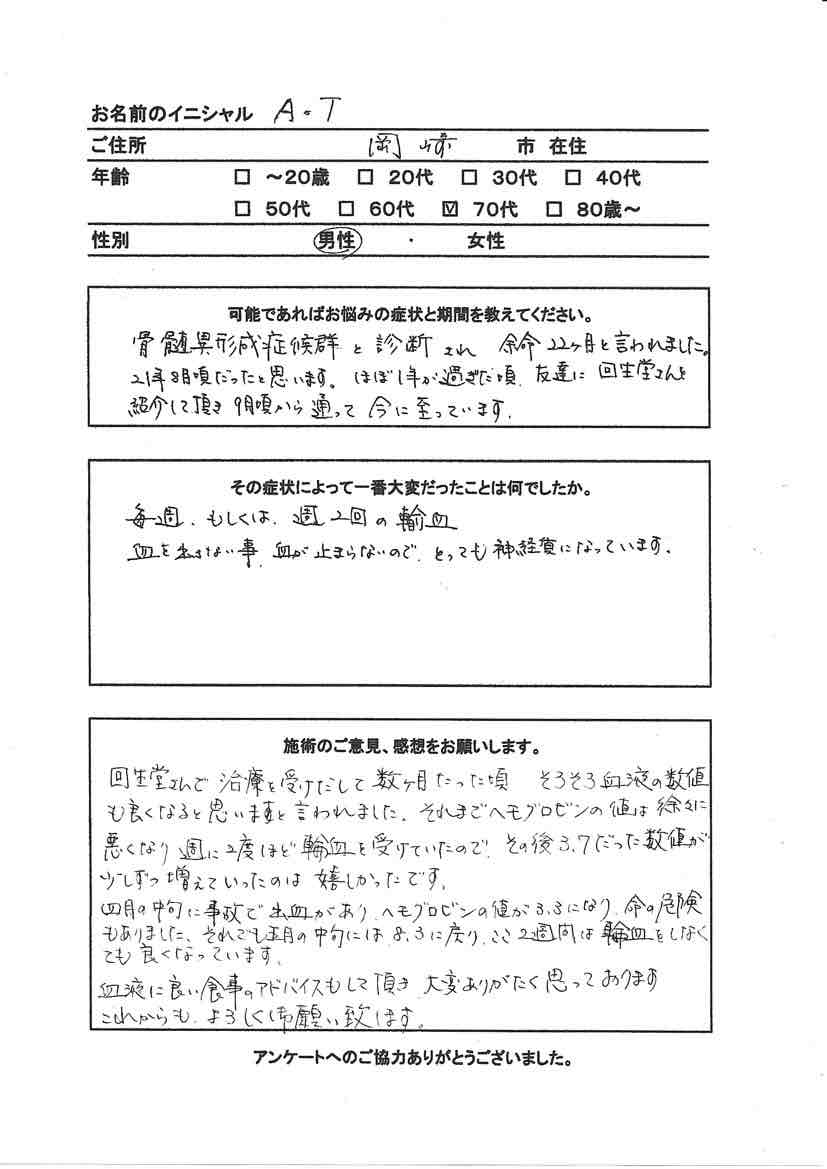 お名前のイニシャル A・T
ご住所 岡崎 市 在住
年齢 □ ～20歳 □ 20代 □ 30代 □ 40代
□ 50代 □ 60代 ☑ 70代 □ 80歳～
性別 男性 ・ 女性
可能であればお悩みの症状と期間を教えてください。
骨髄異形成症候群と診断され 余命22ヶ月と言われました。
21年8月頃だったと思います。ほぼ1年が過ぎた頃、友達に回生堂さんを
紹介して頂き9月頃から通って今に至っています.
その症状によって一番大変だったことは何でしたか。
毎週、もしくは、週2回の輸血
血を出さない事、血が止まらないので、とっても神経質になっています.
施術のご意見、感想をお願いします。
回生堂さんで治療を受けだして数ヶ月たった頃 そろそろ血液の数値
も良くなると思いますと言われました、それまでヘモグロビンの値は徐々に
悪くなり週に2度ほど輸血を受けていたので、その後3.7だった数値が
少しずつ増えていったのは嬉しかったです.
四月の中旬に事故で出血があり、ヘモグロビンの値が3.3になり、命の危険
もありました、それでも五月の中旬には、8.3に戻り、ここ2週間は輸血をしなく
ても良くなっています.
血液に良い食事のアドバイスもして頂き、大変ありがたく思っております
これからも、よろしくお願い致します.
アンケートへのご協力ありがとうございました。